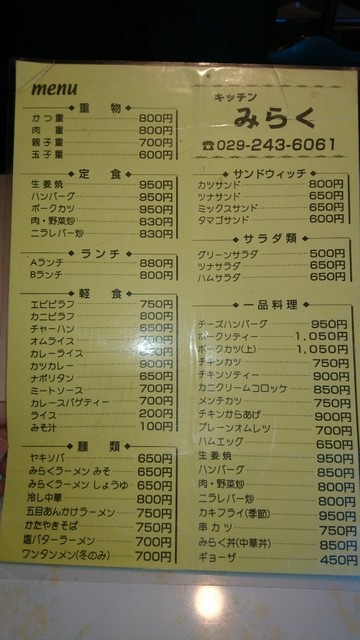 menu
重物
かつ重 800円
肉重 800円
親子重 700円
玉子重 600円
定食
生姜焼 950円
ハンバーグ 950円
ポークカツ 950円
肉・野菜炒 830円
ニラレバー炒 830円
ランチ
Aランチ 880円
Bランチ 800円
軽食
エビピラフ 750円
カニピラフ 800円
チャーハン 650円
オムライス 700円
カレーライス
カツカレー 900円
ナポリタン 650円
ミートソース 700円
カレースパゲティー 700円
ライス 200円
みそ汁 100円
麺類
ヤキソバ 650円
みらくラーメン みそ 650円
みらくラーメン しょうゆ 650円
冷し中華 800円
五目あんかけラーメン 750円
かたやきそば 750円
塩バターラーメン 700円
ワンタンメン(冬のみ) 700円
キッチン
みらく
☎029-243-6061
サンドウィッチ
カツサンド 800円
ツナサンド 650円
ミックスサンド 650円
タマゴサンド 600円
サラダ類
グリーンサラダ 500円
ツナサラダ 650円
ハムサラダ 650円
一品料理
チーズハンバーグ 950円
ポークソティー 1,050円
ポークカツ(上) 1,050円
チキンカツ 750円
チキンソティー 900円
カニクリームコロッケ 850円
メンチカツ 750円
チキンからあげ 900円
プレーンオムレツ 700円
ハムエッグ 650円
生姜焼 950円
ハンバーグ 850円
肉・野菜炒 800円
ニラレバー炒 800円
カキフライ(季節) 950円
串カツ 750円
みらく丼(中華丼) 850円
ギョーザ 450円